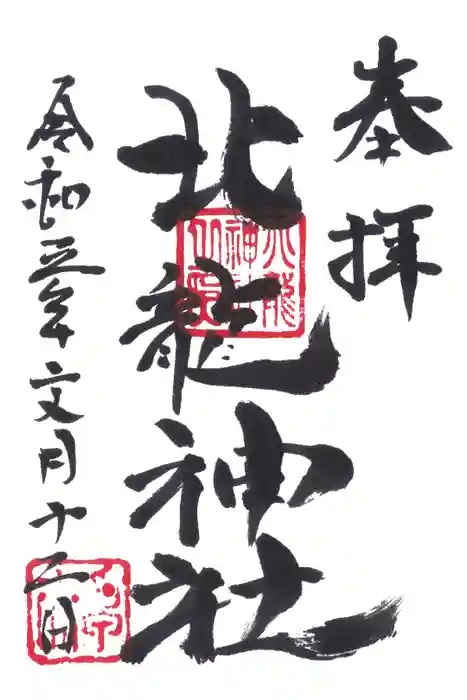 奉拝
北龍神社
令和三年文月十二日